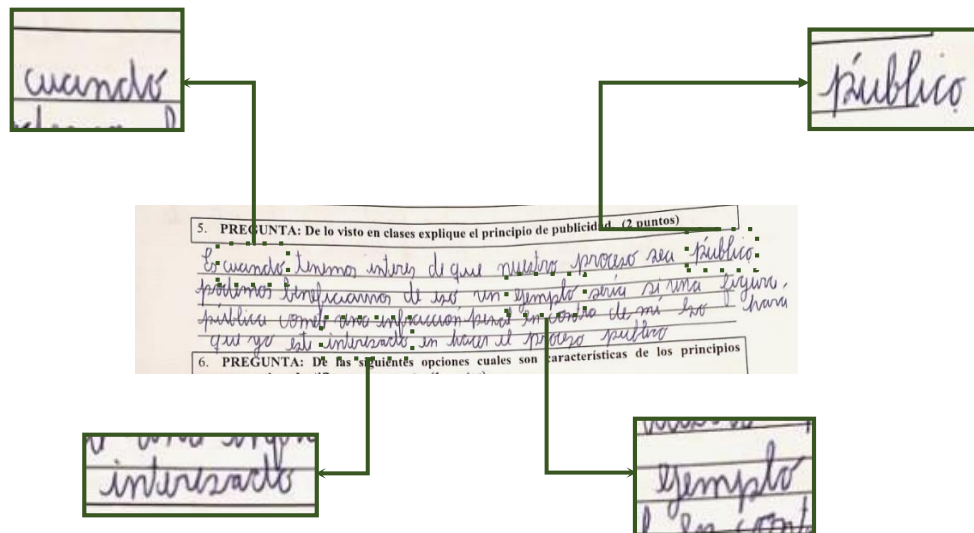 cuando
público
5. PREGUNTA: De lo visto en clases explique el principio de publicidad. (2 puntos)
Es cuando tenemos interes de que nuestro proceso sea público
podemos beneficiarnos de eso un ejemplo sería si una figura
pública comete una infracción penal en contra de mí eso hara
que yo este interesado en hacer el proceso publico
6. PREGUNTA: De las siguientes opciones cuales son características de los principios
interesado
ejemplo